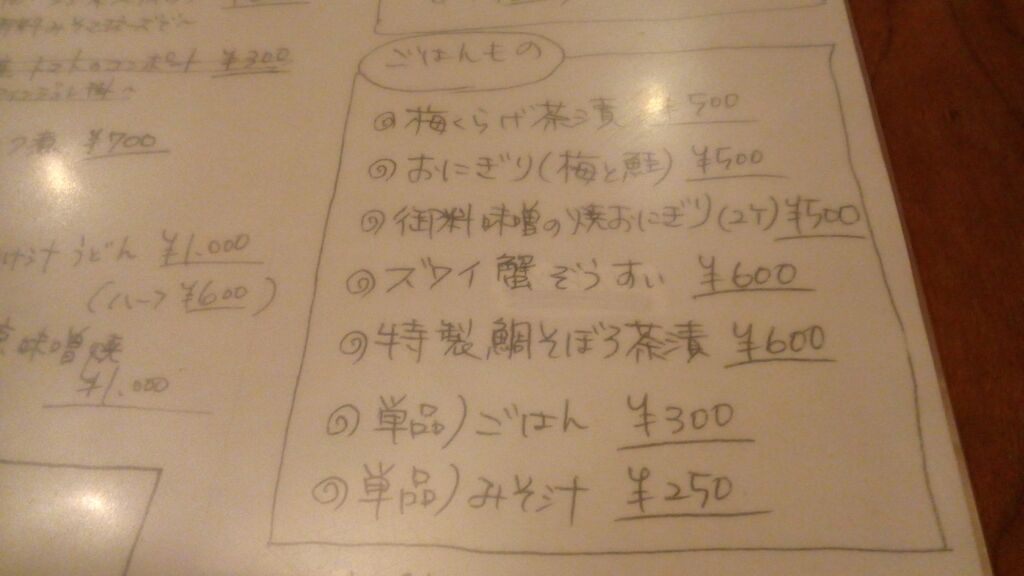 ¥300
¥700
うどん ¥1.000
(ハーフ ¥600)
味噌焼
¥1.000
ごはんもの
梅くらげ茶漬 ¥500
おにぎり(梅と鮭) ¥500
御料味噌の焼おにぎり(2ケ) ¥500
ズワイ蟹ぞうすい ¥600
特製鯛そぼろ茶漬 ¥600
単品)ごはん ¥300
単品)みそ汁 ¥250